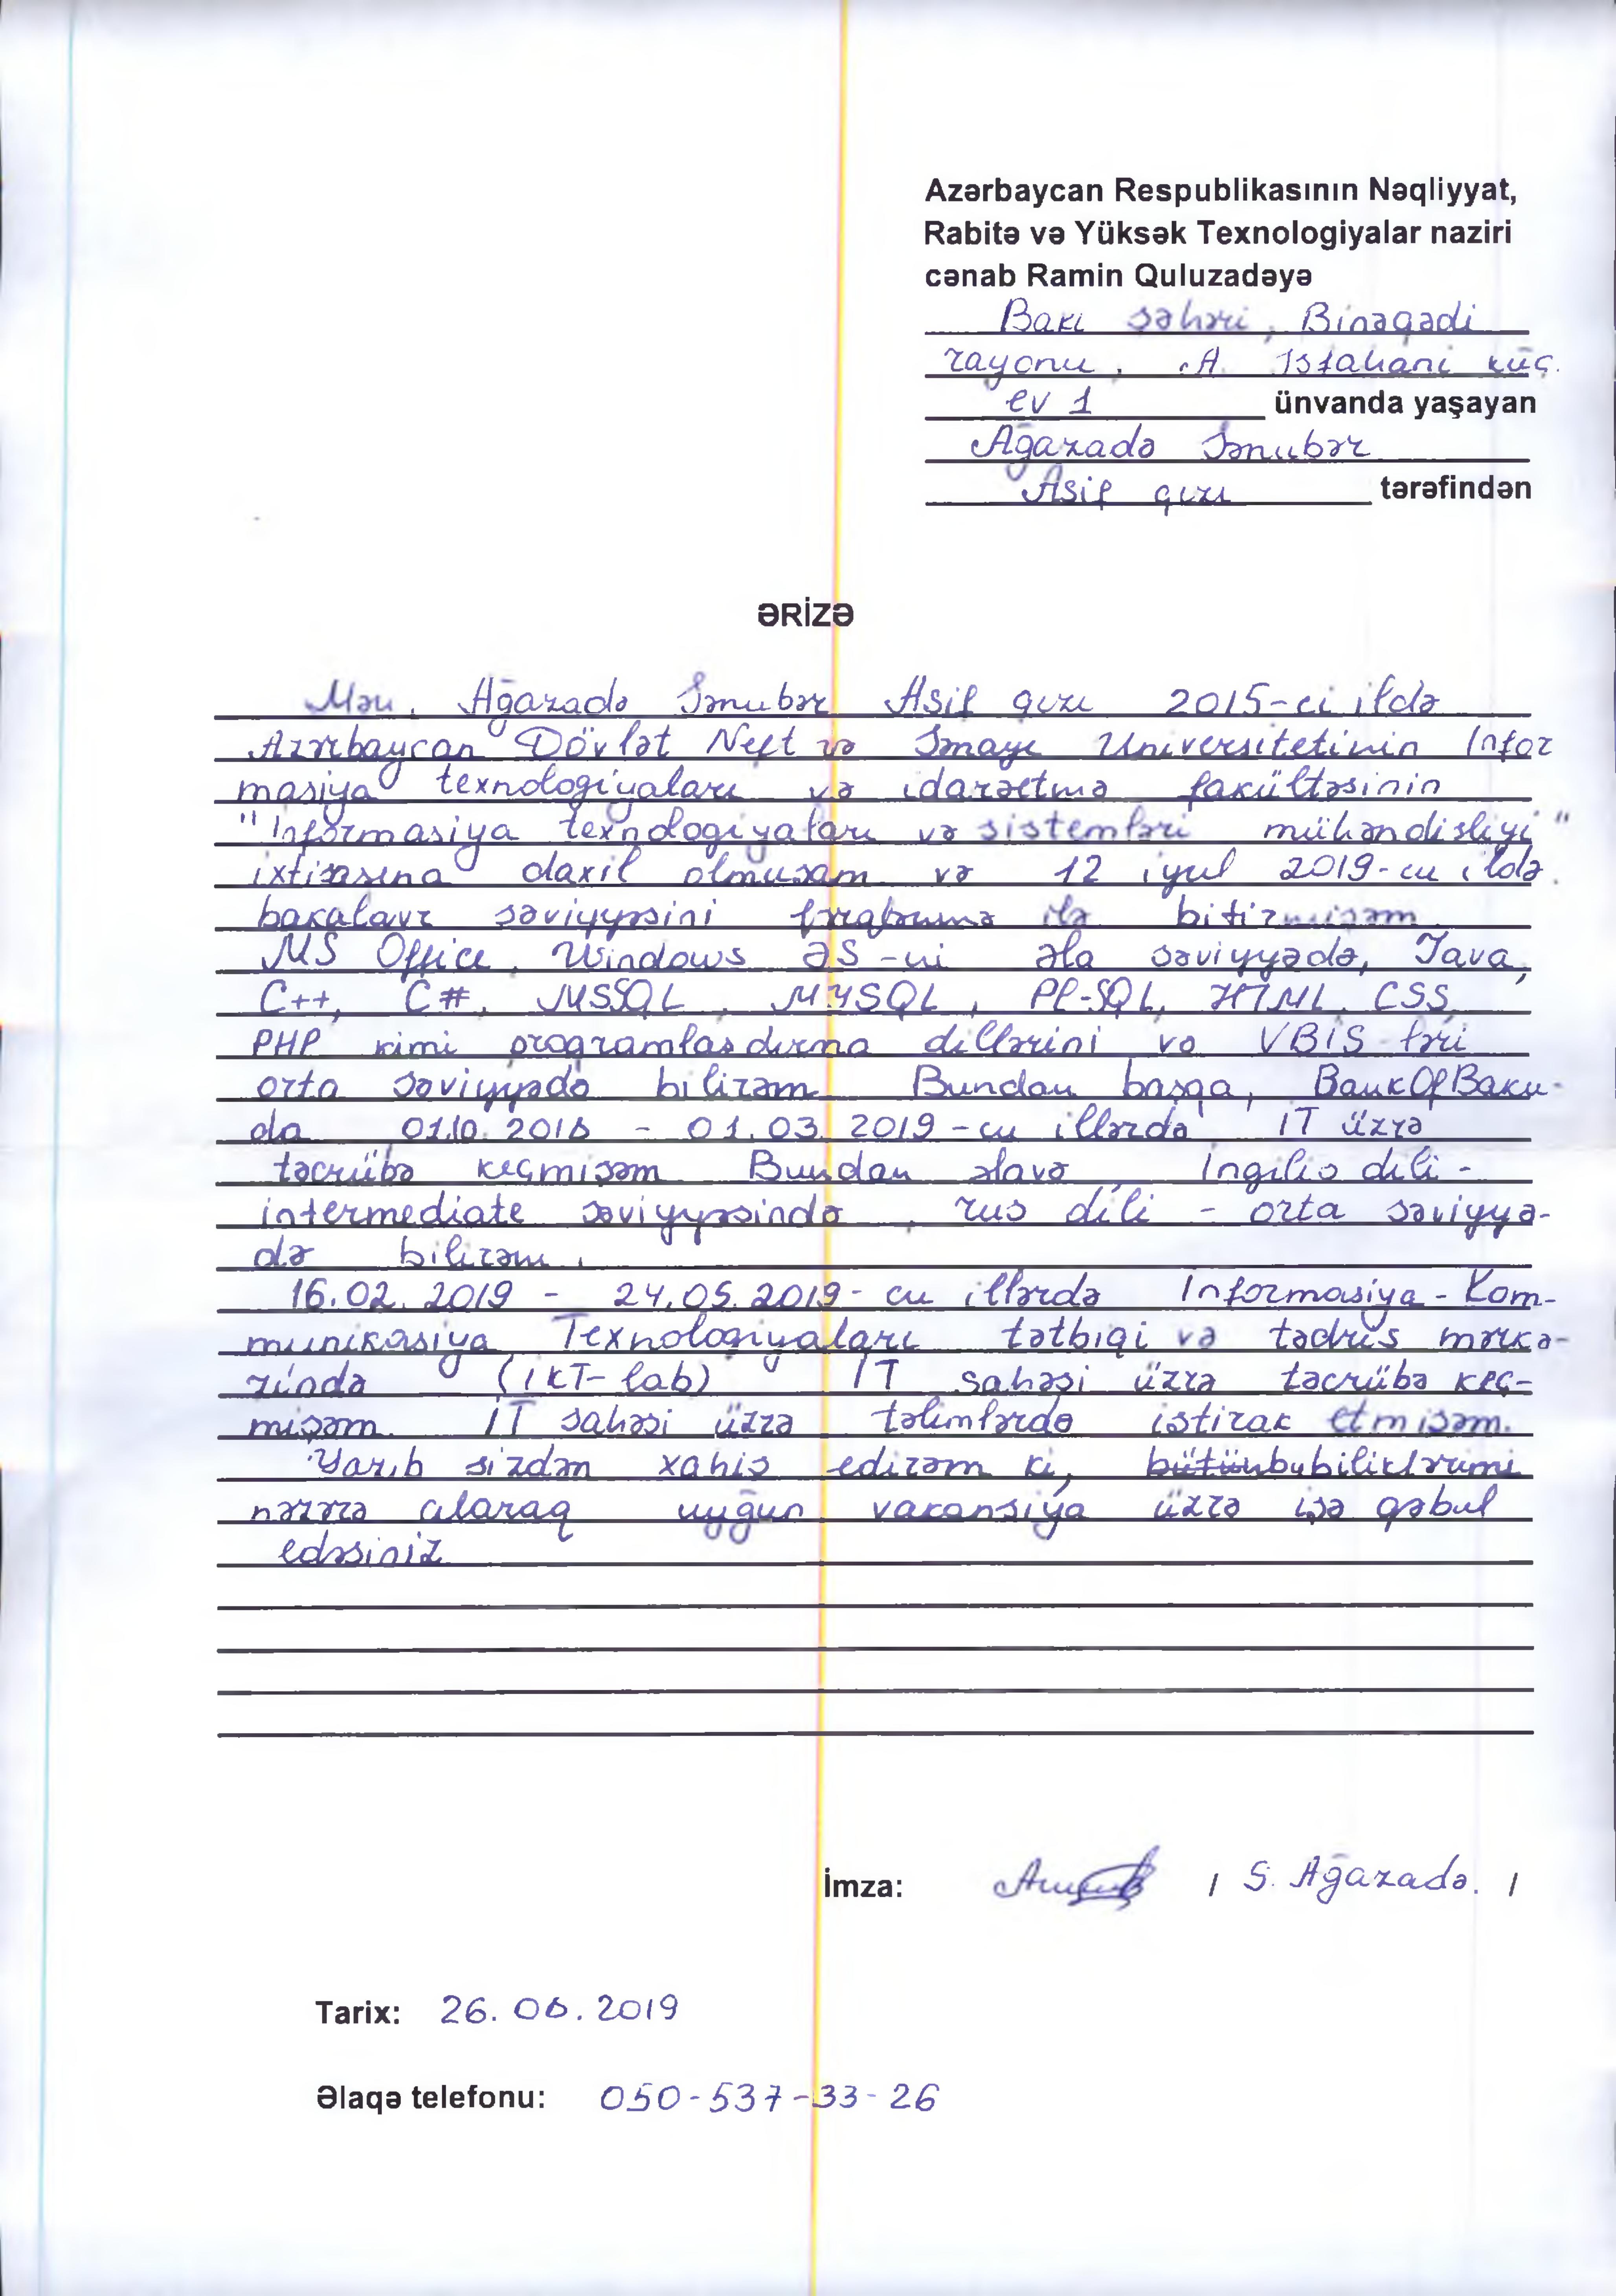 Azərbaycan Respublikasının Nəqliyyat,
Rabitə və Yüksək Texnologiyalar naziri
cənab Ramin Quluzadəyə
Bakı şəhəri, Binəqədi
rayonu, A. Isfahani küç.
ev 1 ünvanda yaşayan
Ağazadə Sənubər
Asif qızı tərəfindən
ƏRİZƏ
Mən, Ağazadə Sənubər Asif qızı 2015-ci ildə
Azərbaycan Dövlət Neft və Sənaye Universitetinin Infor
masiya texnologiyaları və idarəetmə fakültəsinin
"Informasiya texnologiyaları və sistemləri mühəndisliyi"
ixtisasına daxil olmuşam və 12 iyul 2019-cu ildə
bakalavr səviyyəsini ilə bitirmişəm
MS Office, Windows ƏS-ni əla səviyyədə, Java,
C++, C#, MSSQL, MYSQL, PL-SQL, HTML, CSS,
PHP kimi proqramlaşdırma dillərini və VBİS-ləri
orta səviyyədə bilirəm. Bundan başqa, BankOfBaku-
da 01.10.2018 - 01.03.2019-cu illərdə IT üzrə
təcrübə keçmişəm. Bundan əlavə, Ingilis dili -
intermediate səviyyəsində, rus dili - orta səviyyə-
də bilirəm.
16.02.2019 - 24.05.2019-cu illərdə Informasiya-Kom-
munikasiya Texnologiyaları tətbiqi və tədris mərkə-
zində (İKT-lab) IT sahəsi üzrə təcrübə keç-
mişəm. İT sahəsi üzrə təlimlərdə iştirak etmişəm.
Yazıb sizdən xahiş edirəm ki, bütün bu biliklərimi
nəzərə alaraq uyğun vakansiya üzrə işə qəbul
edəsiniz
İmza: / S. Ağazadə. /
Tarix: 26.08.2019
Əlaqə telefonu: 050-537-33-26